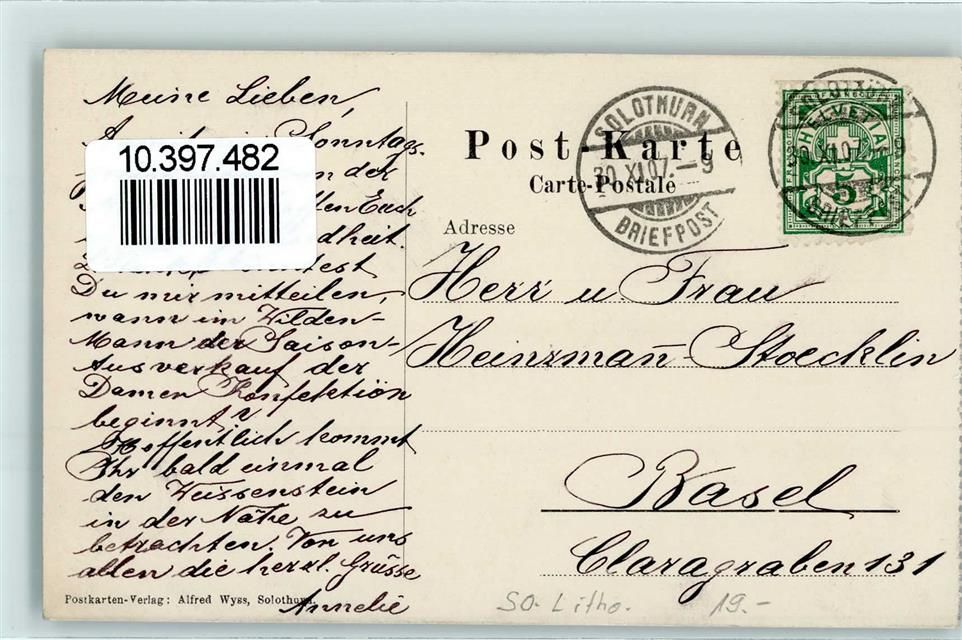 Meine Lieben,
Sonntags-
der
Euch
dheit.
Du mir mitteilen,
wann im Wilden-
Mann der Saison-
Ausverkauf der
Damen Konfektion
beginnt?
Hoffentlich kommt
Ihr bald einmal
den Weissenstein
in der Nähe zu
betrachten. Von uns
allen die herzl. Grüsse
Annelie
10.397.482
Post-Karte
Carte-Postale
Adresse
Herr u. Frau
Heinzmañ-Stoecklin
Basel
Claragraben 131
SOLOTHURN
30.XI.07.–9
BRIEFPOST
HELVETIA
5
Postkarten-Verlag: Alfred Wyss, Solothurn.
SO. Litho. 19.-